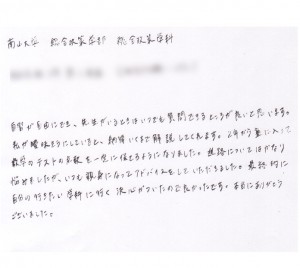 南山大学 総合政策学部 総合政策学科
自習が自由にでき、先生がいるときはいつでも質問できるところが良いと思います。
私が曖昧そうにしていると、納得いくまで解説してくれます。2年から塾に入って
数学のテストの点数を一気に伸せるようになりました。進路についてはかなり
悩みましたが、いつも親身になってアドバイスをしていただきました。最終的に
自分の行きたい学科に行く決心がついたので良かったです。本当にありがとう
ございました。